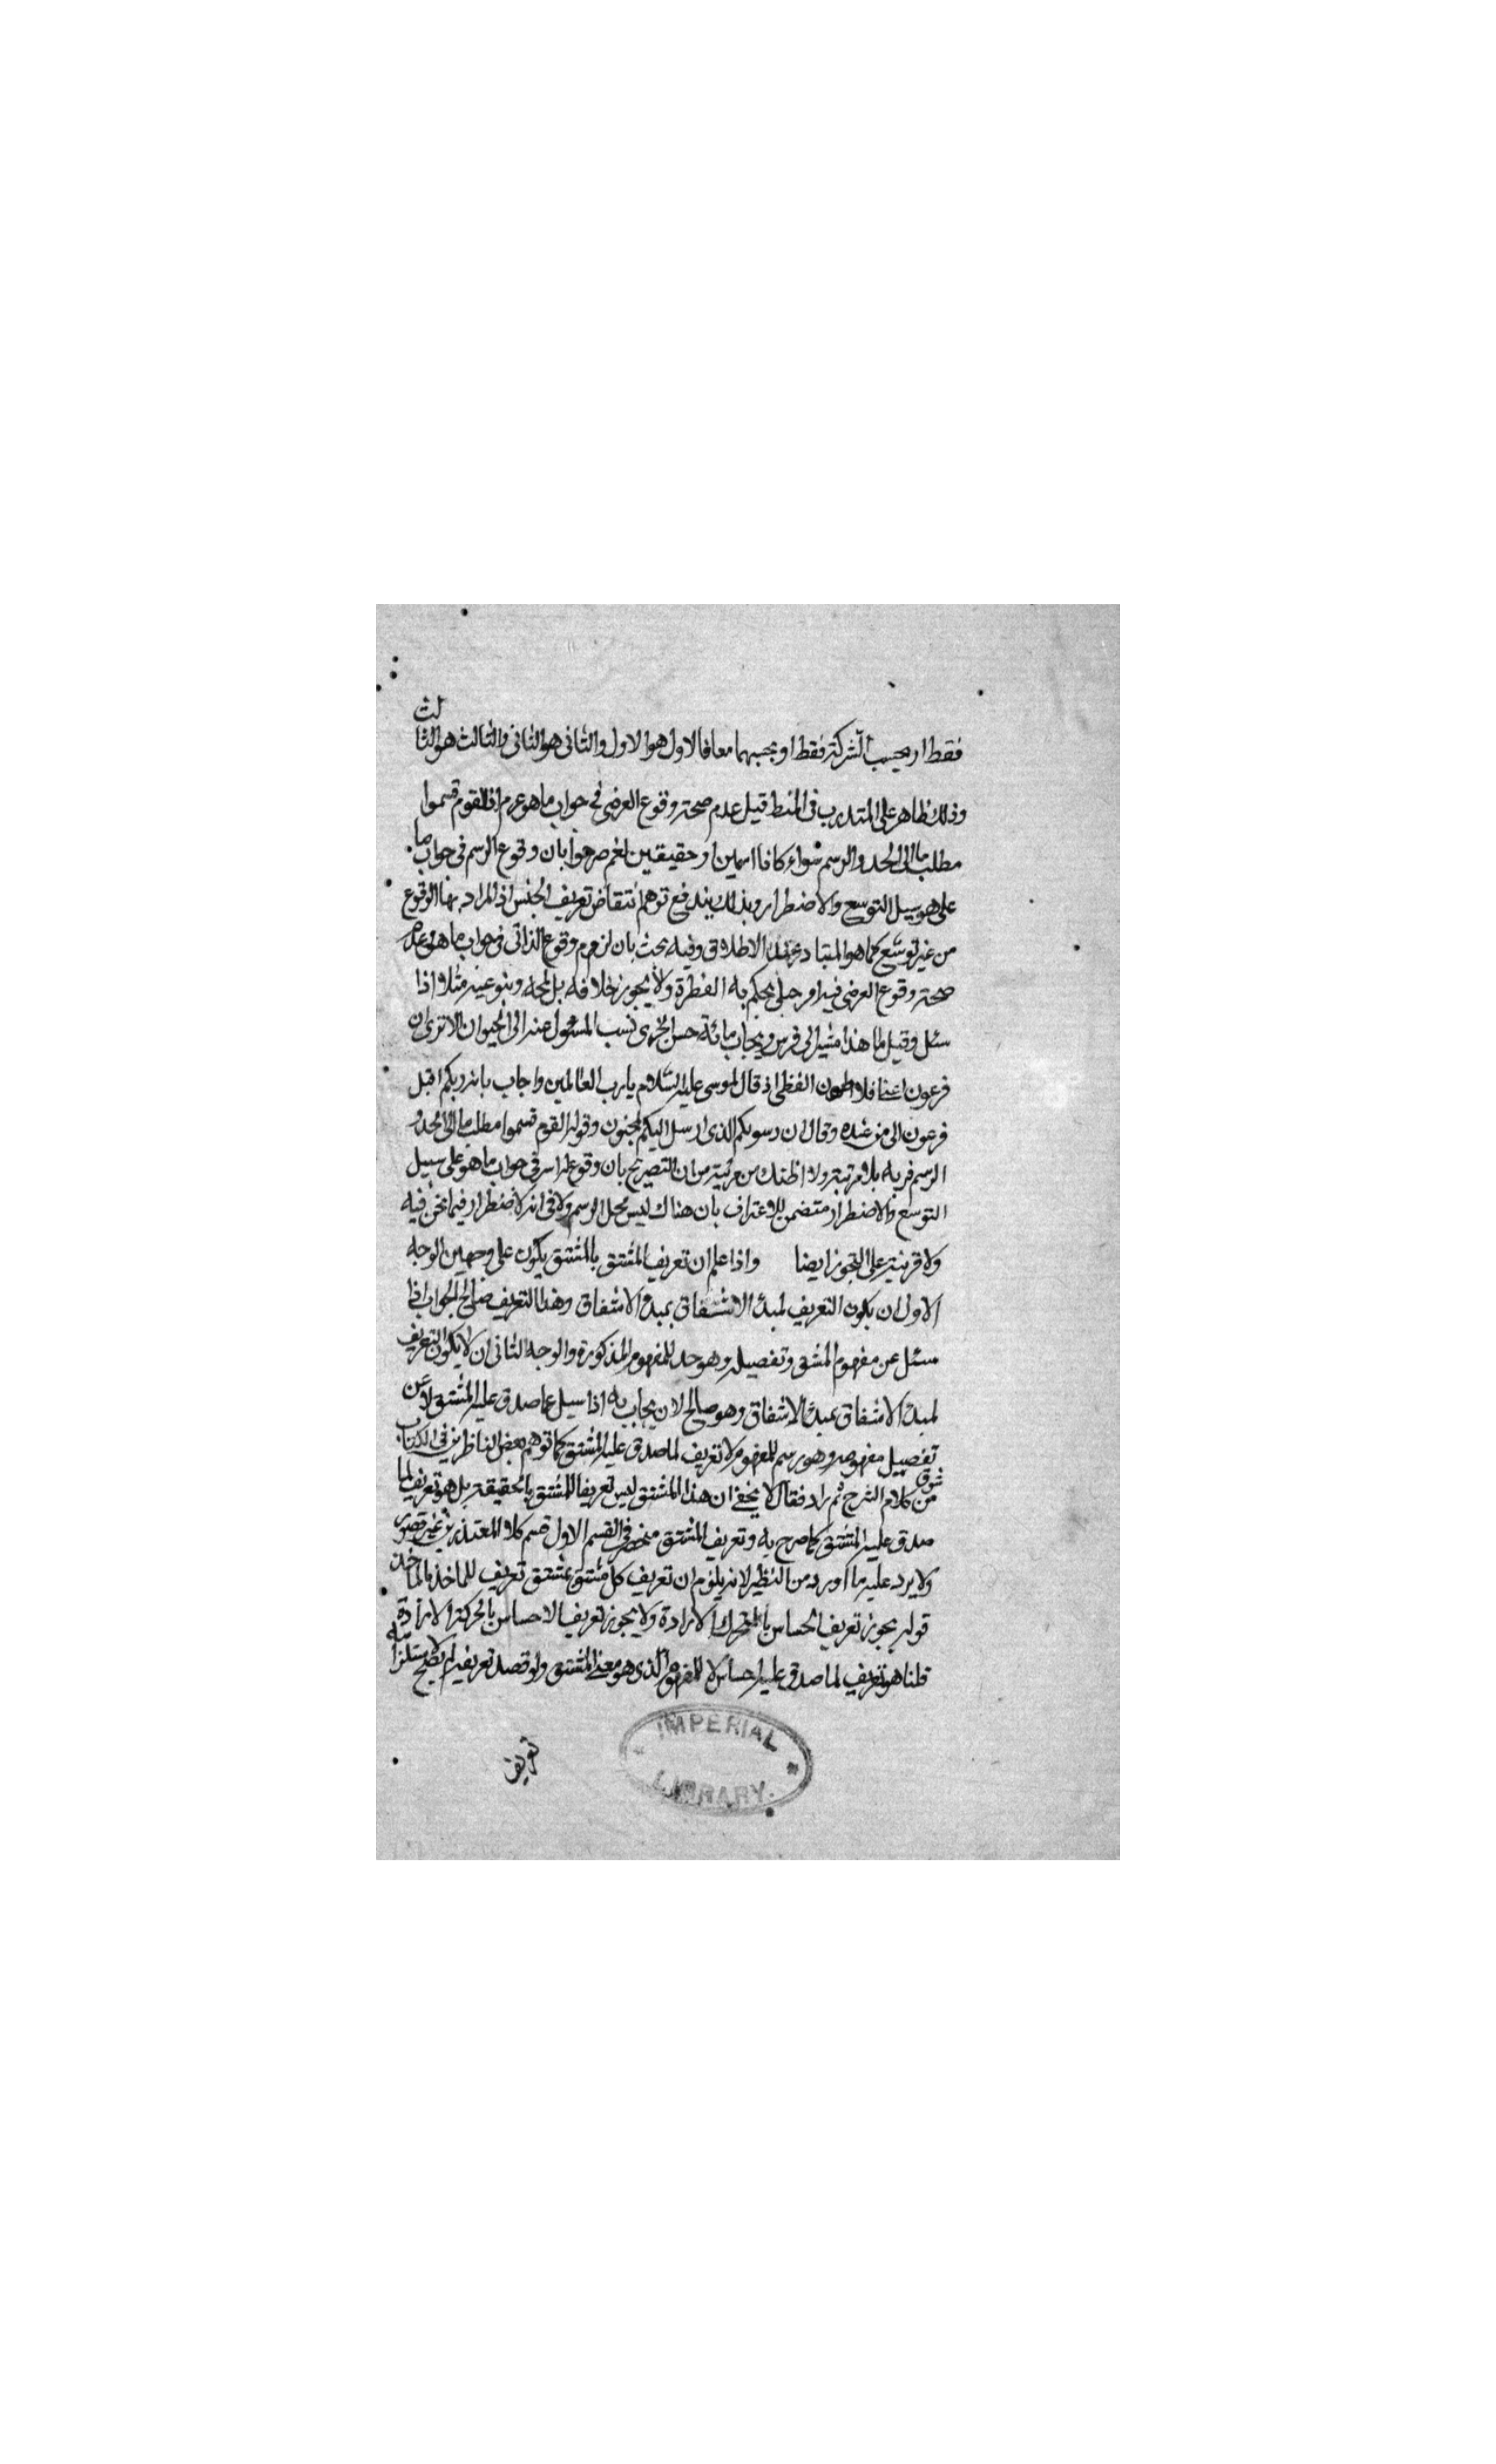 فقط او بحسب الشركة فقط او بحسبهما معا فالاول هو الاول والثانى هو الثانى والثالث هو الثالث
وذلك ظاهر على المتدرب فى المنط قيل عدم صحة وقوع العرضى فى جواب ما هو عرم اذ القوم قسموا
مطلب ما الى الحد والرسم سواء كانا اسمين او حقيقين نعم صرحوا بان وقوع الرسم فى جواب ما
على هو سبيل التوسع والاضطرار وبذلك يندفع توهم انتقاض تعريف الجنس اذ المراد بها الوقوع
من غير توسع كما هو المتبادر عند الاطلاق وفيه بحث بان لزوم وقوع الذاتى فى جواب ما هو وعدم
صحة وقوع العرضى فيه امر جلى يحكم به الفطرة ولا يجوز خلافه بل نحه وينوعينه مثلا اذا
سئل وقيل ما هذا مشيرا الى فرس ويجاب بانه حسن الجرى نسب المسؤول عنه الى الحيوان الا ترى ان
فرعون افلاطون الفظى اذ قال لموسى عليه السلام يا رب العالمين واجاب بانه ربكم اقبل
فرعون الى من عنده وقال ان رسولكم الذى ارسل اليكم لمجنون وقوله القوم قسموا مطلب ما الى الحد و
الرسم فريه بلا مرتبة ولا اظنك من مرية من ان التصريح بان وقوع الرسم فى جواب ما هو على سبيل
التوسع والاضطرار متضمن للاعتراف بان هناك ليس محل الرسم ولا فى انه لا اضطرار فيما نحن فيه
ولا قرينة على التجوز ايضا واذا علم ان تعريف المشتق بالمشتق يكون على وجهين الوجه
الاول ان يكون التعريف لمبدء الاشتقاق بمبدء الاشتقاق وهذا التعريف صالح الجواب اذا
سئل عن مفهوم المشتق وتفصيله وهو حد للمفهوم المذكورة والوجه الثانى ان لا يكون التعريف
لمبدء الاشتقاق بمبدء الاشتقاق وهو صالح لان يجاب به اذا سيل عما صدق عليه المشتق لا عن
تفصيل مفهومه وهو رسم للمفهوم لا تعريف لما صدق عليه المشتق كما توهم بعض الناظرين فى الكتاب
من كلام الشرح ثم زاد فقال لا يخفى ان هذا المشتق ليس تعريفا للمشتق بالحقيقة بل هو تعريف لما
صدق عليه المشتق كما صرح به وتعريف المشتق منحصر فى القسم الاول قسم كلام المعتذرين غير قصور
ولا يرد عليه ما اورده من النظير لانه يلزم ان تعريف كل مشتق بمشتق تعريف للماخذ بالماخذ
قوله يجوز تعريف الحساس بالمتحرك الارادة ولا يجوز تعريف الاحساس بالحركة الارادة
قلنا هو تعريف لما صدق عليه احساس لا للمفهوم الذى هو معنى المشتق ولو قصد تعريفه لم يصلح
تعريف
IMPERIAL
LIBRARY.